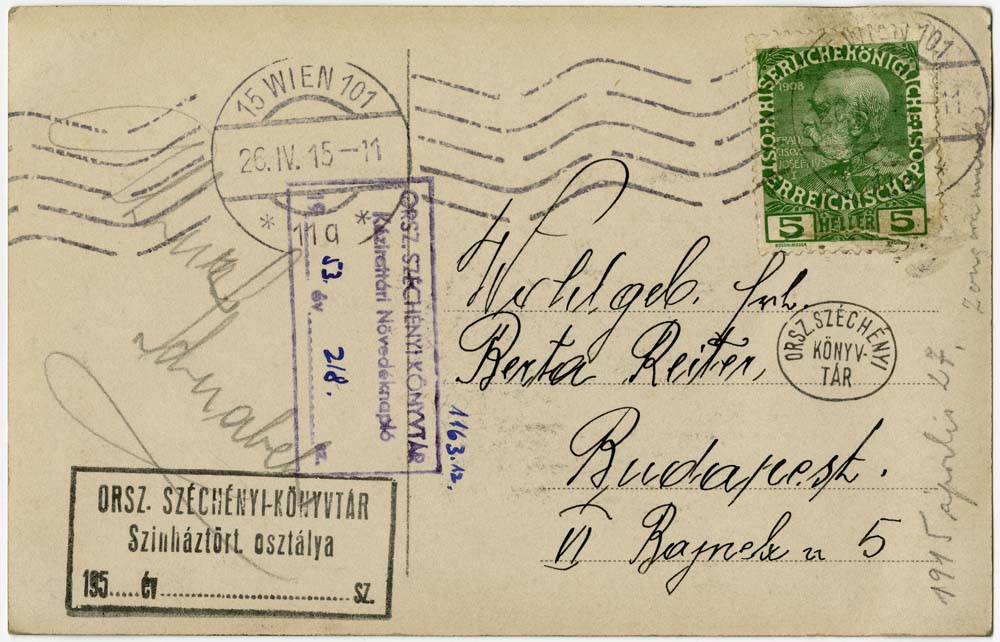 15 WIEN 101
26.IV.15-11
* 11a *
WIEN 101
11
KAISERLICHE KÖNIGLICHE
ÖSTERREICHISCHE POST
1908
5 HELLER 5
ORSZ. SZÉCHÉNYI KÖNYVTÁR
Kézirattári Növedéknapló
1953. év 218. sz.
1163.12.
geb. frl.
Berta Reiter,
Budapest.
VI Bajnek u 5
ORSZ. SZÉCHÉNYI
KÖNYV-
TÁR
1915 április 27.
ORSZ. SZÉCHÉNYI-KÖNYVTÁR
Színháztört. osztálya
195..... év .............................. sz.